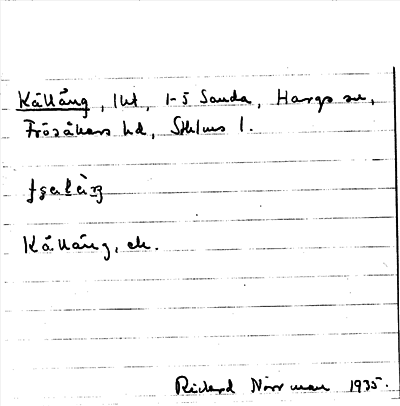 Källäng, lht, 1-5 Sanda, Hargs sn,
Frösåkers hd, Sthlms l.
Källäng, ek.
Rickard Norrman 1935.